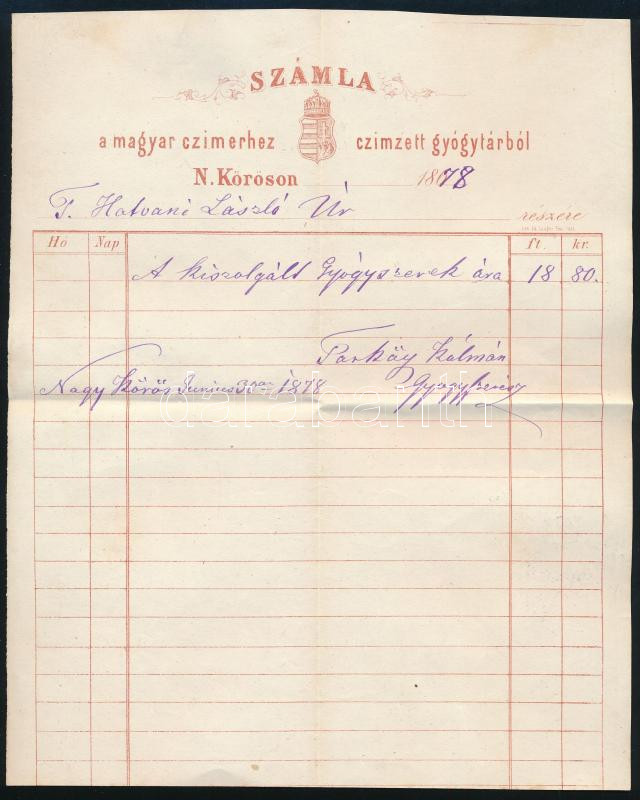 SZÁMLA
a magyar czimerhez czimzett gyógytárból
N. Körösön 18678
T. Hatvani László Úr részére
Hó Nap ft. kr.
A kiszolgált Gyógyszerek ára 18 80.
Parkáy Kálmán
Nagy Körös Junius 1878 Gyógyszerész
darabanth